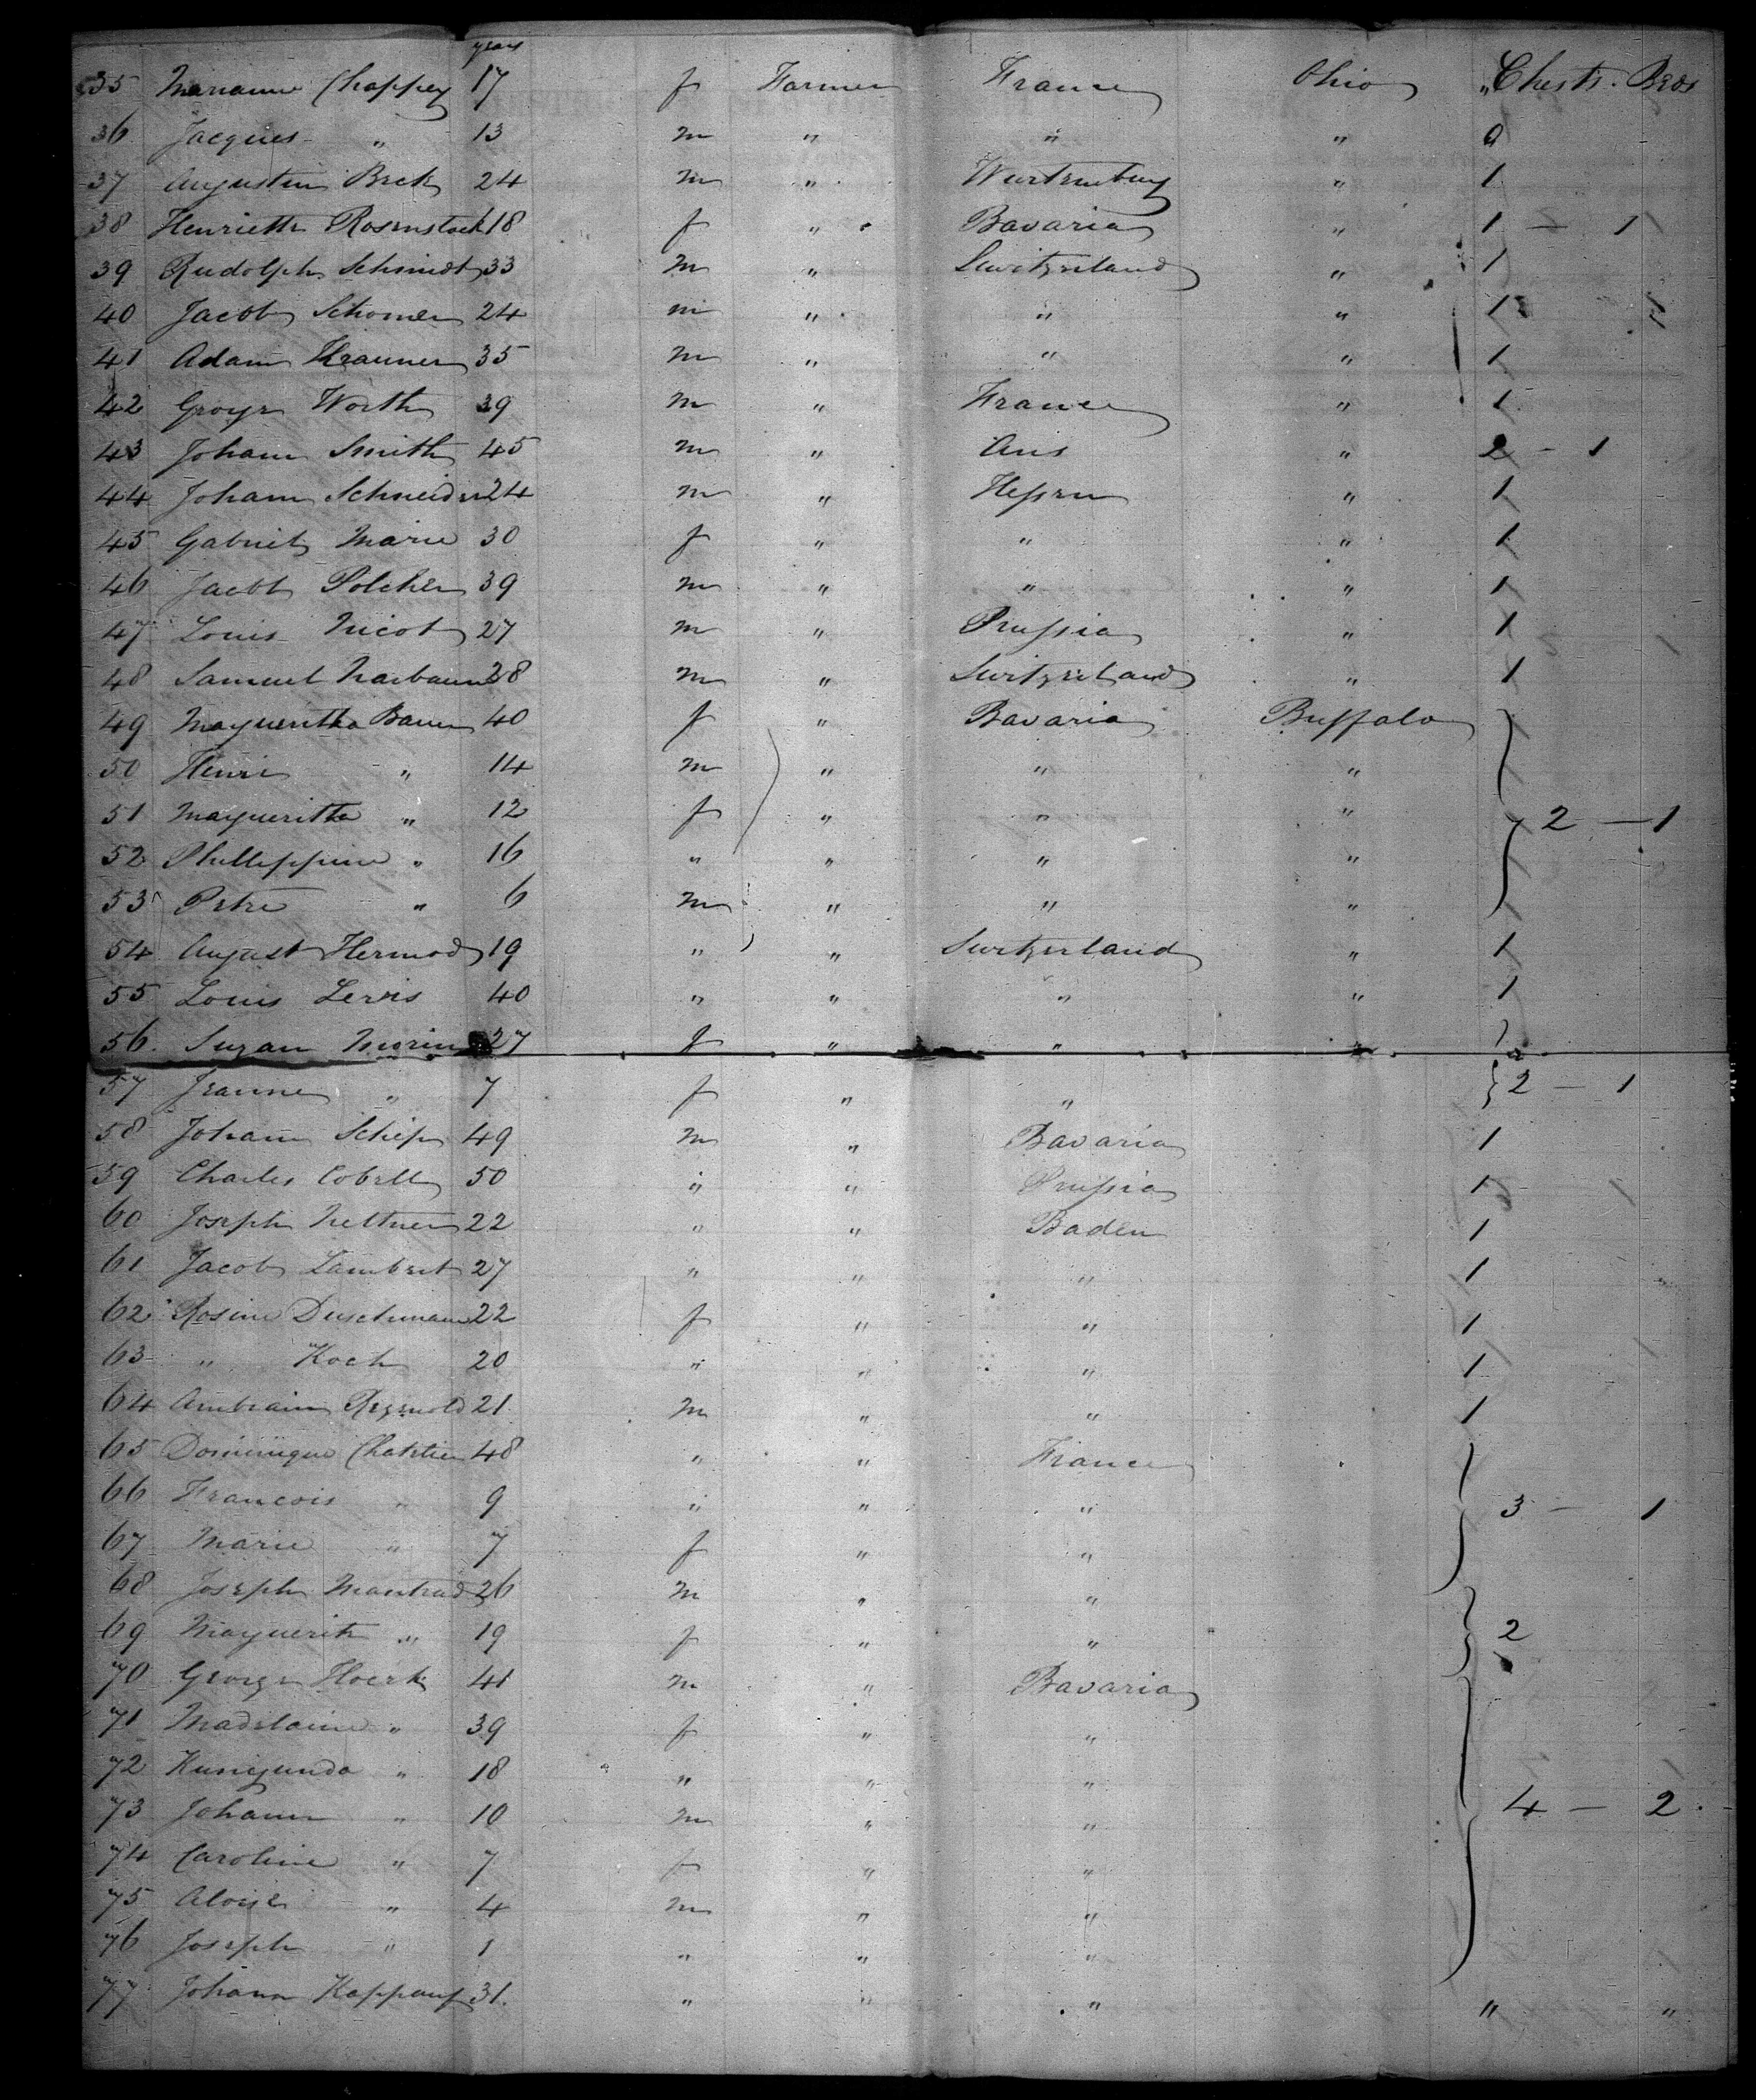 years
35 Marianne Chappey 17 f Farmer France Ohio " Chests. Beds
36 Jacques " 13 m " " " 0
37 Augustin Beck 24 m " Wurtemburg " 1
38 Henriette Rosenstock 18 f " Bavaria " 1 — 1
39 Rudolph Schmidt 33 m " Switzerland " 1
40 Jacob Schomer 24 m " " " 1
41 Adam Krauner 35 m " " " 1
42 George Worth 39 m " France " 1
43 Johann Smith 45 m " " 2 - 1
44 Johann Schneider 24 m " Hessen " 1
45 Gabriel Marie 30 f " " " 1
46 Jacob Polcher 39 m " " " 1
47 Louis Nicot 27 m " Prussia " 1
48 Samuel 28 m " Switzerland " 1
49 Magueritha Bauer 40 f " Bavaria Buffalo
50 Henri " 14 m " " "
51 Magueritha " 12 f " " " 2 — 1
52 Phillippine " 16 " " " "
53 Petre " 6 m " " "
54 August Hermod 19 " " Switzerland " 1
55 Louis Lewis 40 " " " " 1
56. Suzan Morin 27 f " "
57 Jeanne " 7 f " " 2 — 1
58 Johann 49 m " Bavaria 1
59 Charles Cobell 50 " " Prussia 1
60 Joseph Neltner 22 " " Baden 1
61 Jacob Lambert 27 " " " 1
62 Rosine Duschmann 22 f " " 1
63 " Koch 20 " " " 1
64 21 m " " 1
65 Dominique 48 " " France
66 Francois " 9 " " " 3 — 1
67 Marie " 7 f " "
68 Joseph 26 m " "
69 Maguerite " 19 f " " 2
70 George Hoerk 41 m " Bavaria
71 Madelaine " 39 f " "
72 Kunigunda " 18 " " "
73 Johann " 10 m " " 4 — 2
74 Caroline " 7 f " "
75 Aloise " 4 m " "
76 Joseph " 1 " " "
77 Johann Kappauf 31. " " " " "